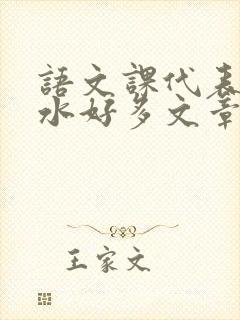 語文課代表
水好多文章
王家文